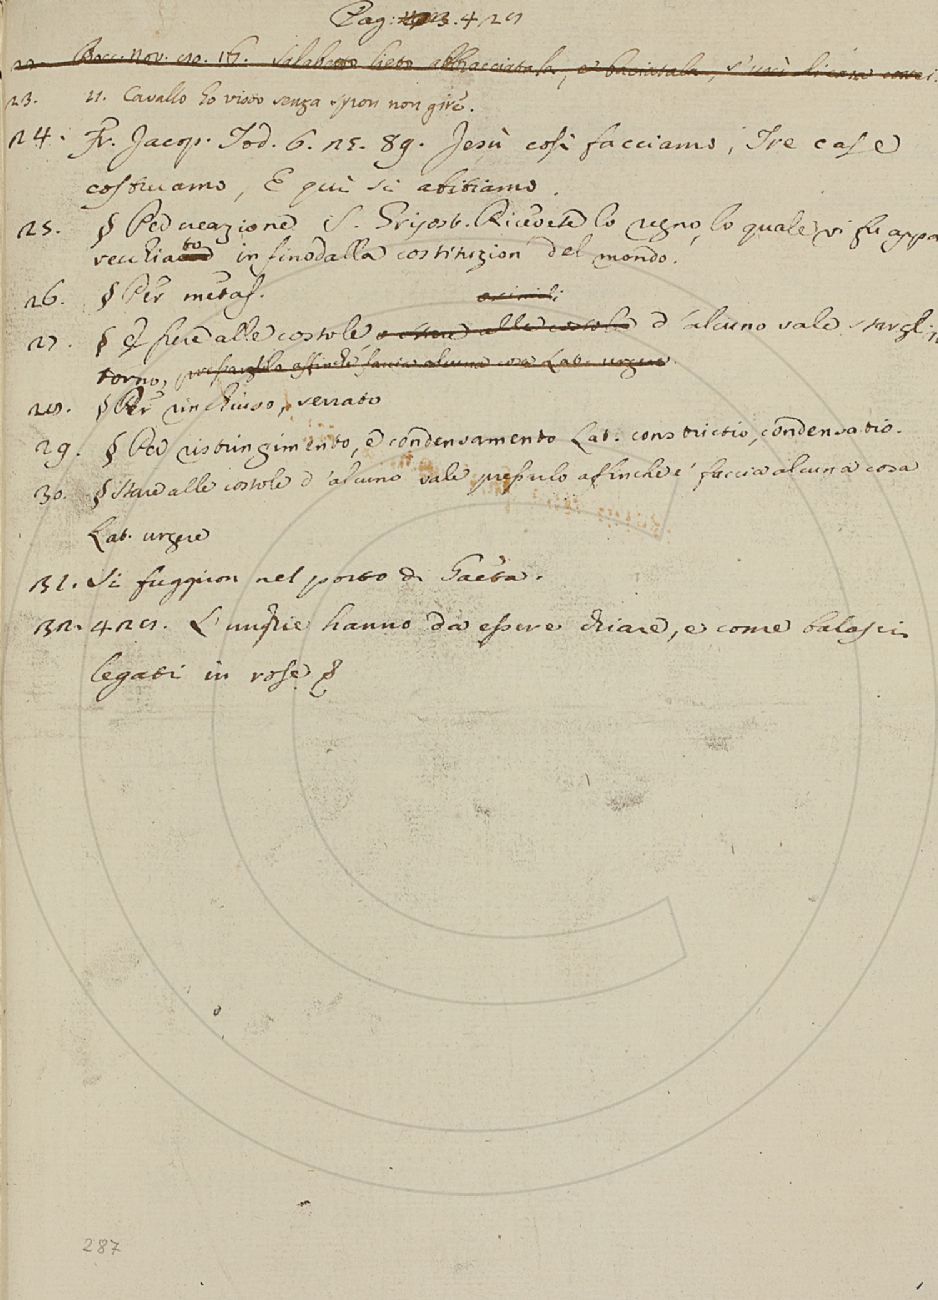 Pag: 3. 428
22. Bocc. Nov. 80. 16. Salabaetto lieto abbracciatala, e baciatala, s'uscì di casa
23. 11. Cavallo ho visto senza spron non gire.
24. Fr. Jacop. Tod. 6. 25. 89. Jesù così facciamo, Tre case
costruiamo, E qui si abitiamo.
25. § Per creazione S. Grisost. Ricevete lo regno, lo quale vi fu appa
recchiato infino dalla costituzion del mondo.
26. § Per metaf.
27. § E fiere alle costole, o stare alle costole d'alcuno vale stargli
torno, pressarlo affinchè faccia alcuna cosa Lat. urgere.
28. § Per rinchiuso, serrato
29. § Per ristringimento, e condensamento Lat. constrictio, condensatio.
30. § Stare alle costole d'alcuno vale pressarlo affinchè e' faccia alcuna cosa
Lat. urgere
31. Si fuggiron nel porto di Gaeta.
32. 428. L'unghie hanno da essere chiare, e come balasci
legati in rose
287